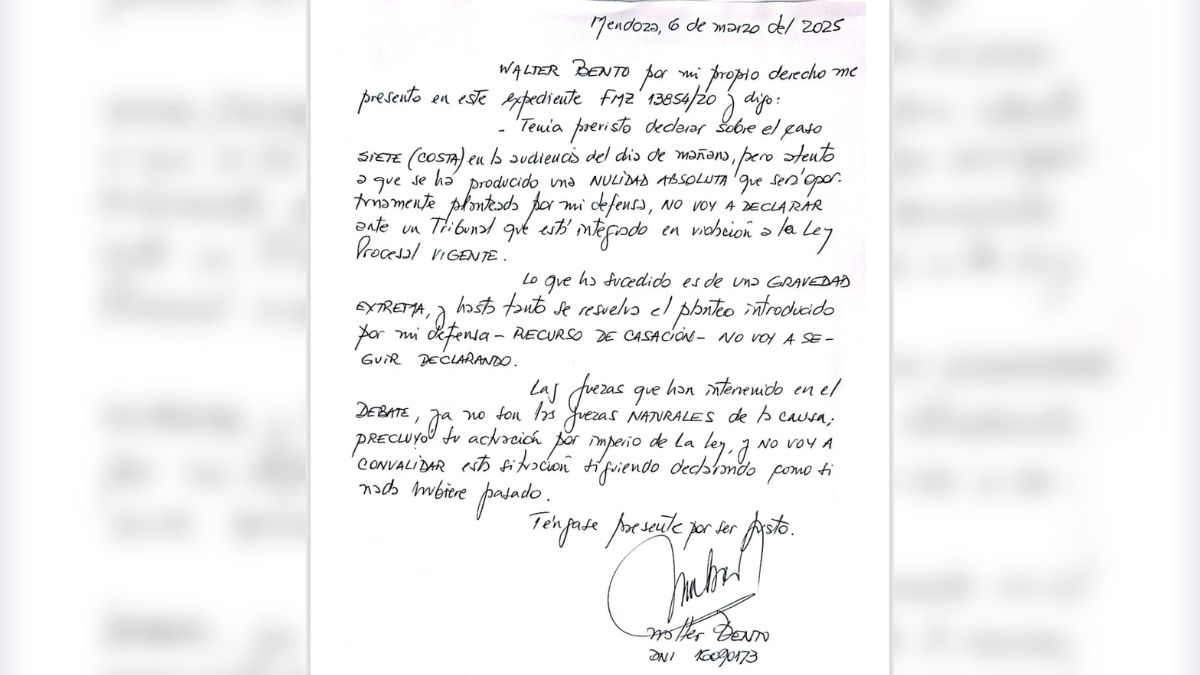 Mendoza, 6 de marzo del 2025
WALTER BENTO por mi propio derecho me
presento en este expediente FMZ 13854/20 y digo:
- Tenía previsto declarar sobre el caso
SIETE (COSTA) en la audiencia del día de mañana, pero atento
a que se ha producido una NULIDAD ABSOLUTA que será opor-
tunamente planteada por mi defensa, NO VOY A DECLARAR
ante un Tribunal que está integrado en violación a la Ley
Procesal VIGENTE.
Lo que ha sucedido es de una GRAVEDAD
EXTREMA, y hasta tanto se resuelva el planteo introducido
por mi defensa - RECURSO DE CASACIÓN - NO VOY A SE-
GUIR DECLARANDO.
Las juezas que han intervenido en el
DEBATE, ya no son las juezas NATURALES de la causa;
PRECLUYO su actuación por imperio de La Ley, y NO VOY A
CONVALIDAR esta situación siguiendo declarando como si
nada hubiere pasado.
Téngase presente por ser justo.
Walter BENTO
DNI 16090173